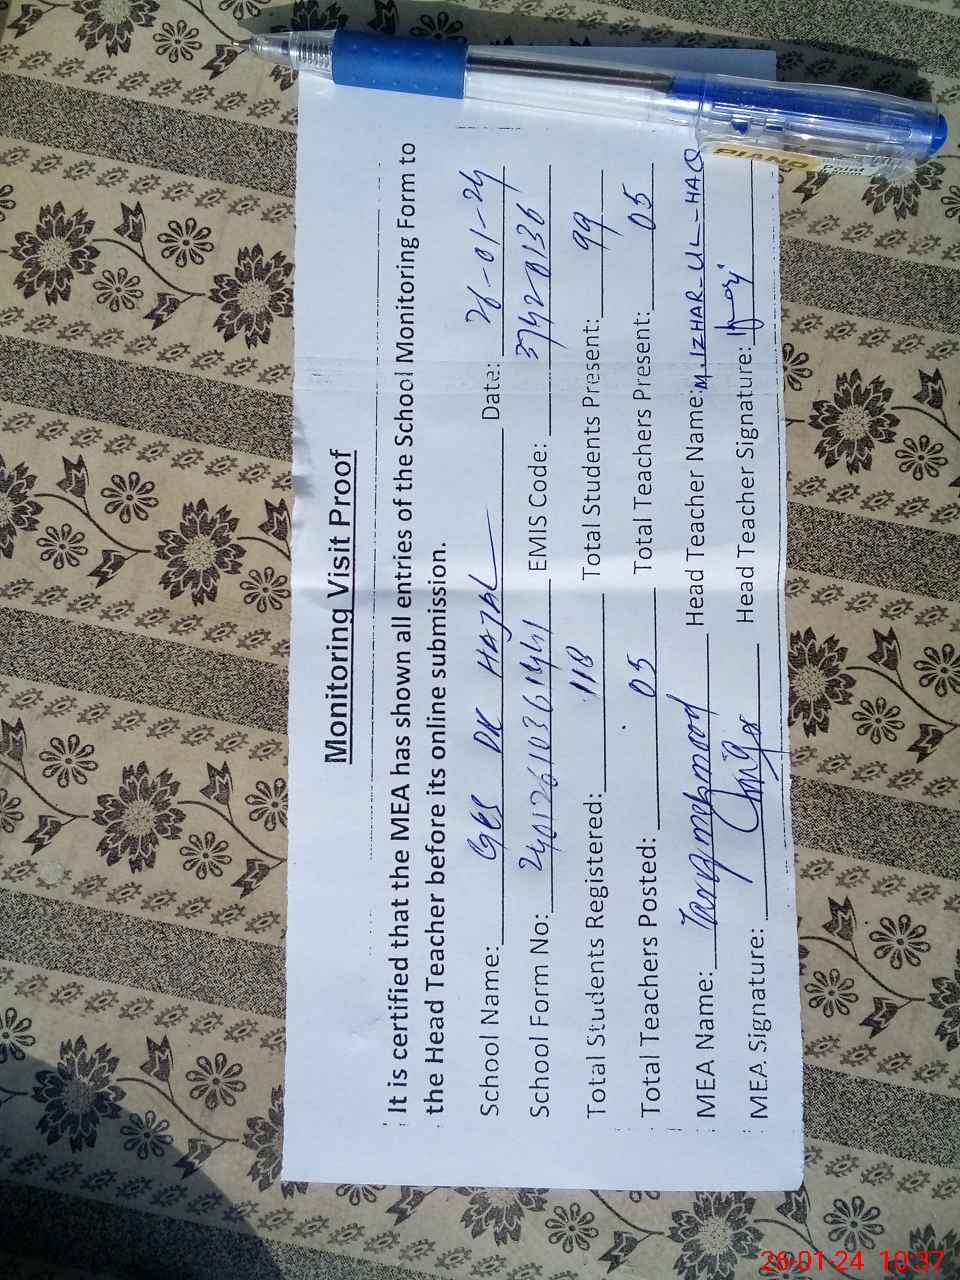 Monitoring Visit Proof
It is certified that the MEA has shown all entries of the School Monitoring Form to
the Head Teacher before its online submission.
School Name: GES DK HAJAL Date: 26-01-24
School Form No: 24012610361441 EMIS Code: 37420136
Total Students Registered: 118 Total Students Present: 99
Total Teachers Posted: 05 Total Teachers Present: 05
MEA Name: Head Teacher Name: M. IZHAR-UL-HAQ
MEA Signature: Head Teacher Signature:
PIANO
Point
26-01-24 10:37